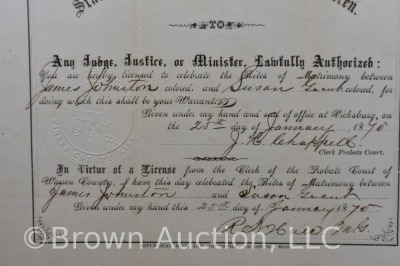 TO
Any Judge, Justice, or Minister, Lawfully Authorized:
You are hereby licensed to celebrate the Rites of Matrimony between
James Johnston colored, and Susan Grant colored, for
doing which this shall be your Warrant.
Given under my hand and seal of office at Vicksburg, on
the 25th day of January 1870
Clerk Probate Court.
In Virtue of a License from the Clerk of the Probate Court of
Warren County, I have this day celebrated the Rites of Matrimony between
James Johnston and Susan Grant
Given under my hand this 25th day of January 1870
© Brown Auction, LLC.com